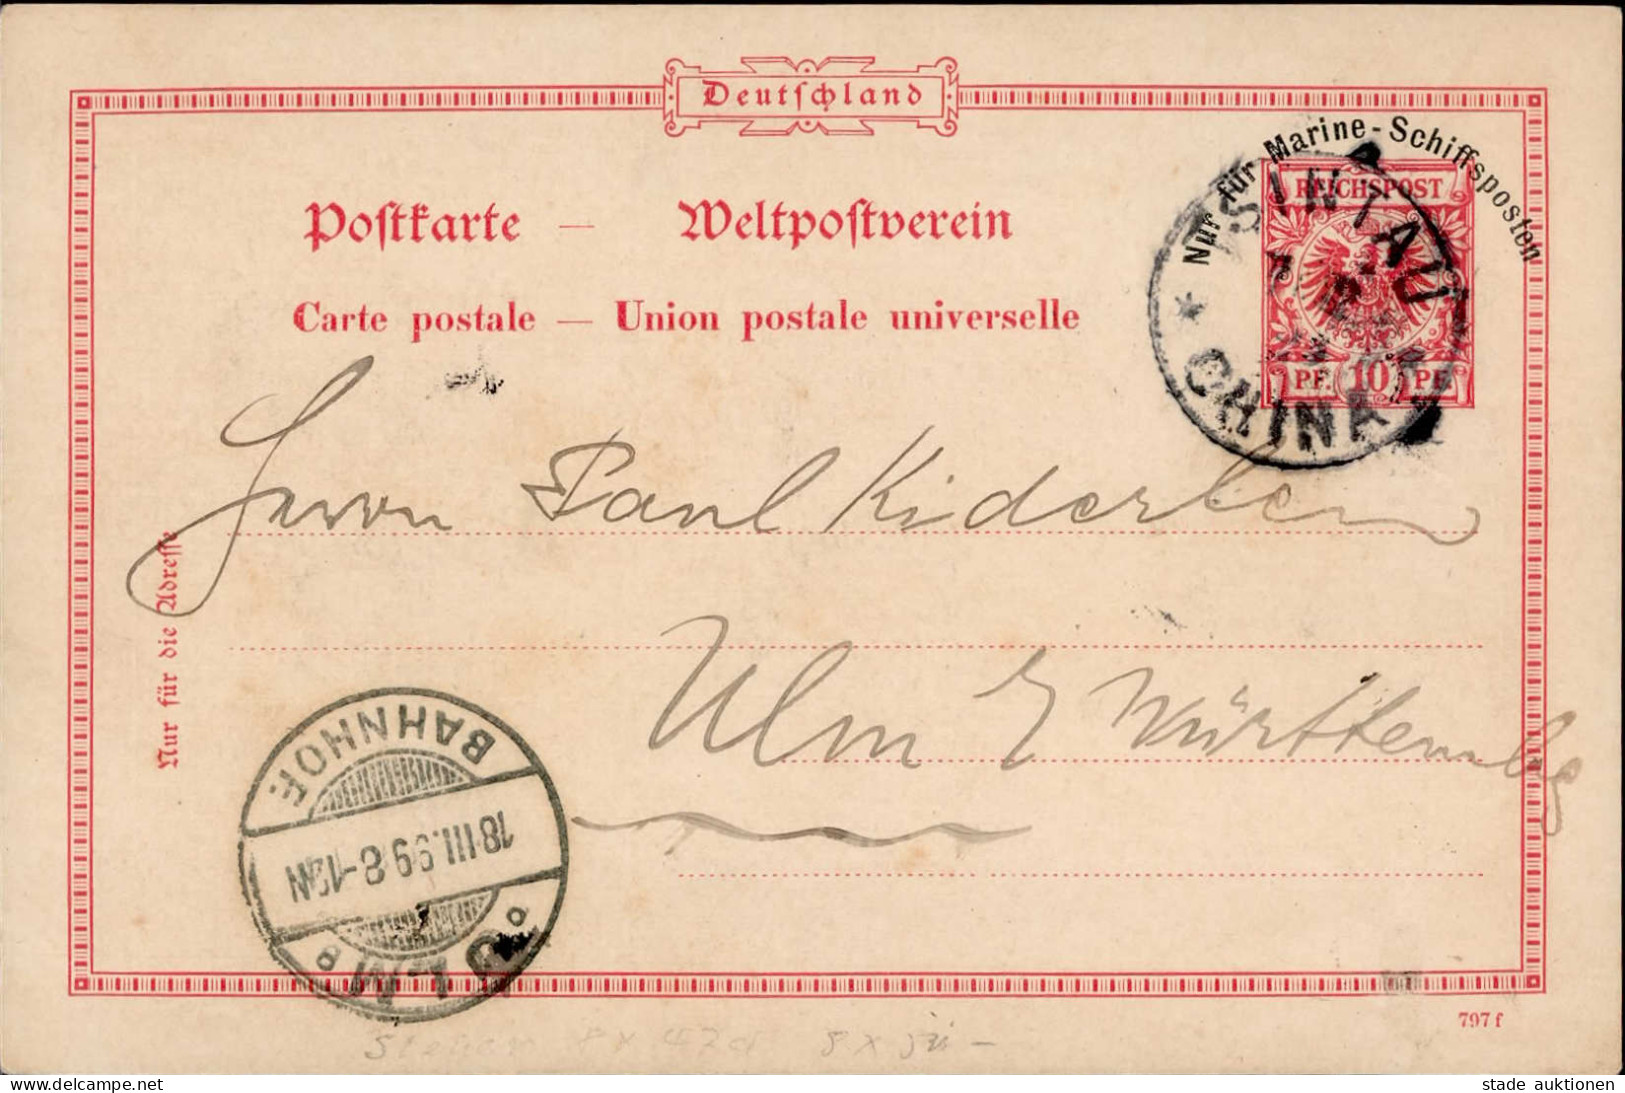 Deutschland
Nur für Marine-Schiffsposten
REICHSPOST
PF. 10 PF.
TSINTAU
CHINA
Postkarte — Weltpostverein
Carte postale — Union postale universelle
Herrn Paul Kiderlen
Ulm Württembg
Nur für die Adresse
ULM
18.III.99 8-12N
BAHNHOF.
797 f
www.delcampe.net
stade auktionen